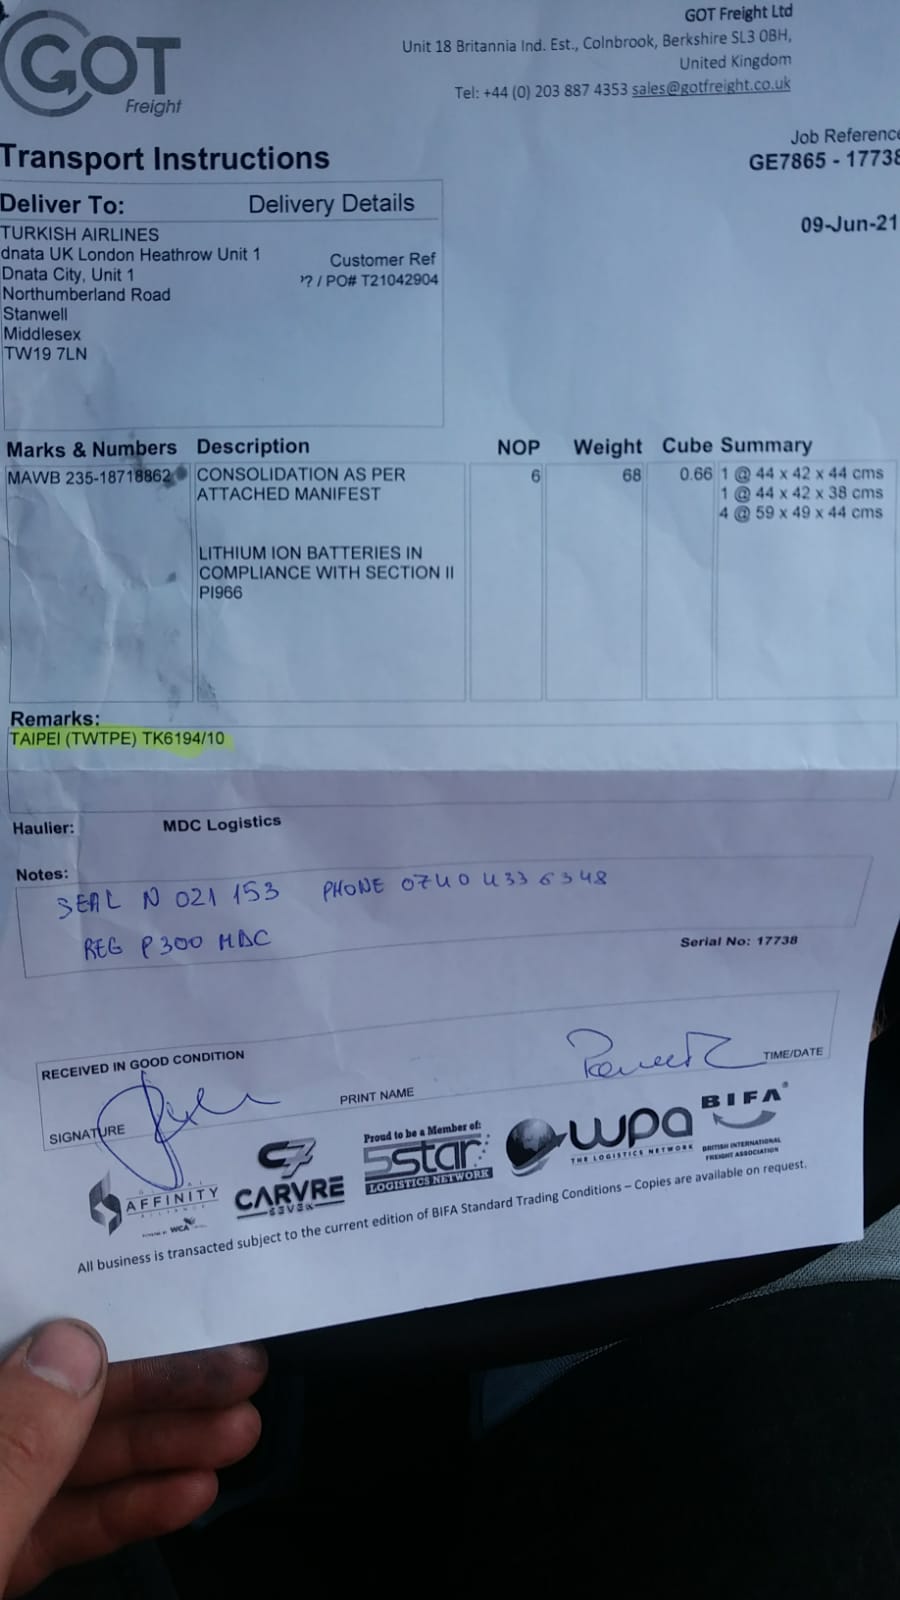 GOT
Freight
GOT Freight Ltd
Unit 18 Britannia Ind. Est., Colnbrook, Berkshire SL3 0BH,
United Kingdom
Tel: +44 (0) 203 887 4353 sales@gotfreight.co.uk
Transport Instructions
Job Reference
GE7865 - 17738
09-Jun-21
Deliver To: Delivery Details
TURKISH AIRLINES
dnata UK London Heathrow Unit 1
Dnata City, Unit 1
Northumberland Road
Stanwell
Middlesex
TW19 7LN
Customer Ref
'? / PO# T21042904
Marks & Numbers Description NOP Weight Cube Summary
MAWB 235-18718862 CONSOLIDATION AS PER 6 68 0.66 1 @ 44 x 42 x 44 cms
ATTACHED MANIFEST 1 @ 44 x 42 x 38 cms
4 @ 59 x 49 x 44 cms
LITHIUM ION BATTERIES IN
COMPLIANCE WITH SECTION II
PI966
Remarks:
TAIPEI (TWTPE) TK6194/10
Haulier: MDC Logistics
Notes:
SEAL N 021 153 PHONE 0740 433 6348
REG P300 MDC
Serial No: 17738
RECEIVED IN GOOD CONDITION
SIGNATURE
PRINT NAME
TIME/DATE
AFFINITY
WCA
C7
CARVRE
SEVEN
Proud to be a Member of:
5star
LOGISTICS NETWORK
wpa
THE LOGISTICS NETWORK
BIFA
BRITISH INTERNATIONAL
FREIGHT ASSOCIATION
All business is transacted subject to the current edition of BIFA Standard Trading Conditions – Copies are available on request.